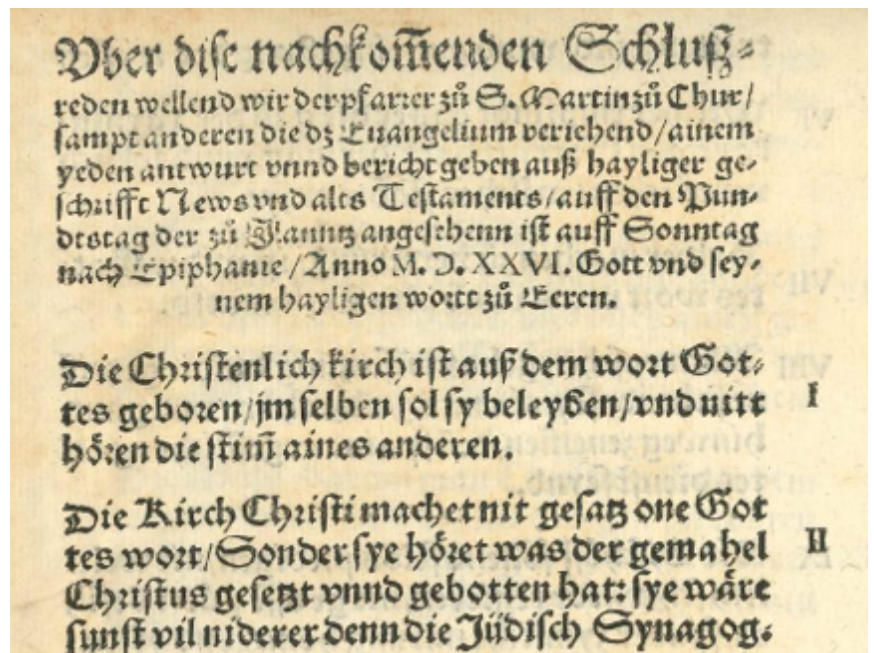 Vber dise nachkom̃enden Schluß⸗
reden wellend wir der pfarrer zů S. Martin zů Chur/
sampt anderen die dz Euangelium veriehend/ainem
yeden antwurt vnnd bericht geben auß hayliger ge⸗
schrifft News vnd alts Testaments/auff den Pun⸗
dtstag der zů Jlanntz angesehenn ist auff Sonntag
nach Epiphanie/Anno M. D. XXVI. Gott vnd sey⸗
nem hayligen wortt zů Eeren.
Die Christenlich kirch ist auß dem wort Got⸗
tes geboren/jm selben sol sy beleyben/vnd nitt I
hören die stim̃ aines anderen.
Die Kirch Christi machet nit gesatz one Got
tes wort/Sonder sye höret was der gemahel II
Christus gesetzt vnnd gebotten hat: sye wäre
sunst vil niderer denn die Jüdisch Synagog⸗